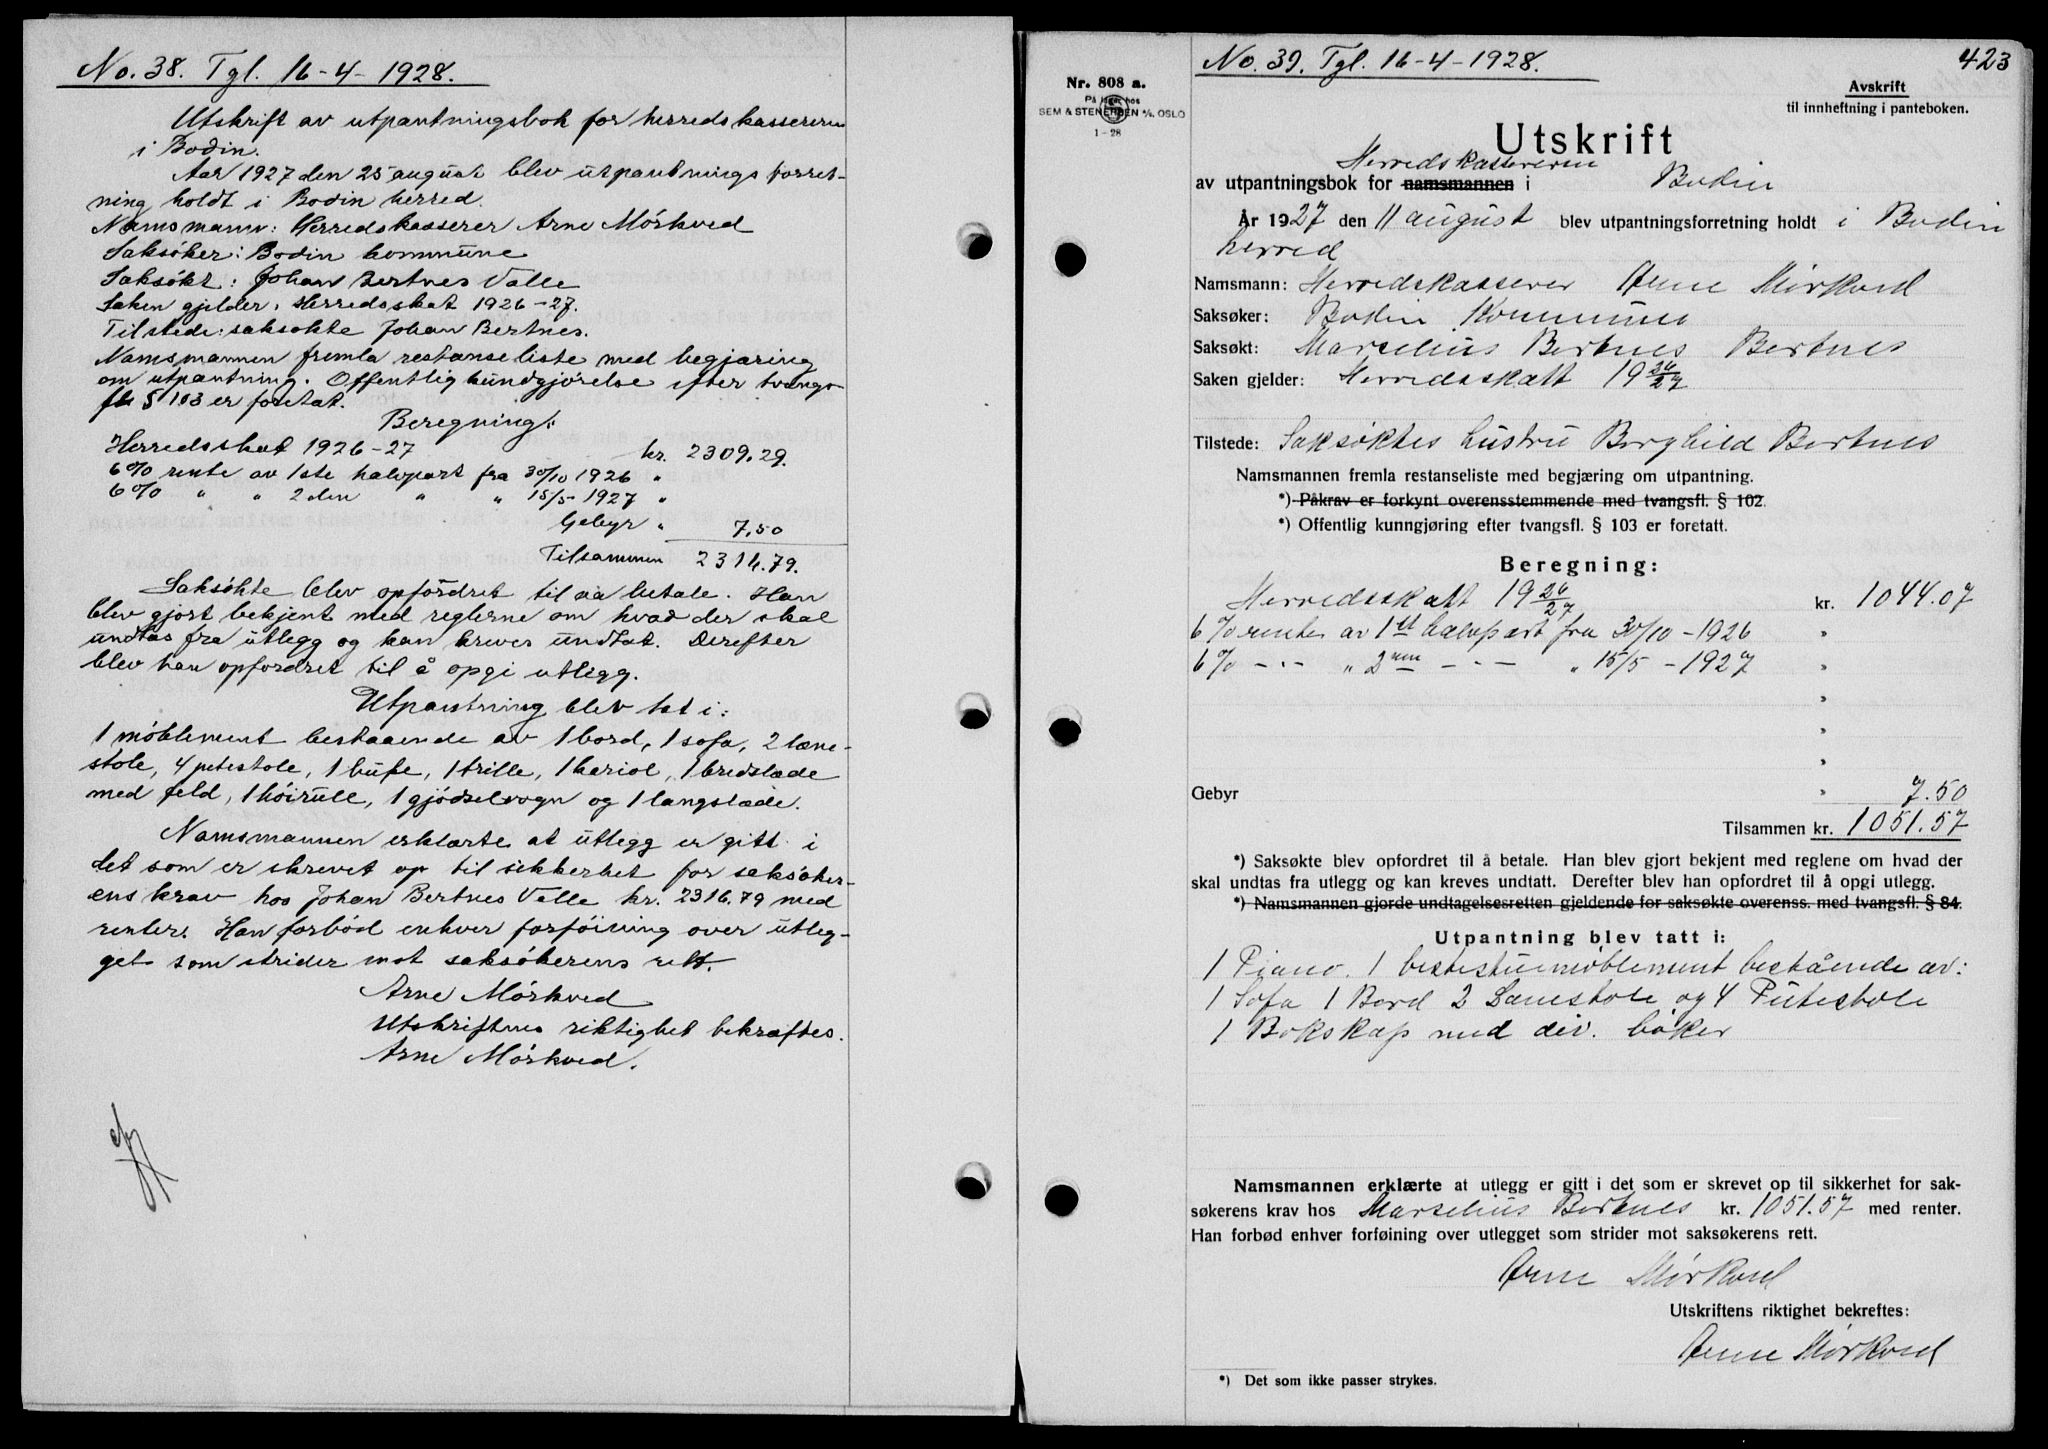 No. 38. Tgl. 16-4-1928.
Utskrift av utpantningsbok for herredskassereren
i Bodin.
Aar 1927 den 25 august blev utpantnings forret-
ning holdt i Bodin herred.
Namsmann: Herredskasserer Arne Mörkved
Saksöker: Bodin kommune
Saksökt: Johan Bertnes Valle
Saken gjelder: Herredsskat 1926-27.
Tilstede: saksökte Johan Bertnes.
Namsmannen fremla restanseliste med begjæring
om utpantning. Offentlig kundgjörelse efter tvangs-
fl. § 103 er foretat.
Beregning:
Herredsskat 1926-27 kr. 2309.29.
6% rente av 1ste halvpart fra 30/10 1926 "
6% " " 2den " " 15/5-1927 "
Gebyr " 7,50
Tilsammen 2316.79.
Saksökte blev opfordret til aa betale. Han
blev gjort bekjent med reglerne om hvad der skal
undtas fra utlegg og kan kreves undtat. Derefter
blev han opfordret til å opgi utlegg.
Utpantning blev tat i:
1 möblement bestaaende av 1 bord, 1 sofa, 2 læne-
stole, 4 putestole, 1 bufe, 1 trille, 1 kariol, 1 bredslæde
med feld, 1 höirull, 1 gjödselvogn og 1 langslæde.
Namsmannen erklærte at utlegg er gitt i
det som er skrevet op til sikkerhet for saksöker-
ens krav hos Johan Bertnes Valle kr. 2316.79 med
renter. Han forbód enhver forföining over utleg-
get som strider mot saksökerens rett.
Arne Mörkved
Utskriftens riktighet bekræftes.
Arne Mörkved.
No. 39. Tgl. 16-4-1928.
423
Nr. 808 a.
På lager hos
SEM & STENERSEN A/S, OSLO
1-28
Avskrift
til innheftning i panteboken.
Utskrift
Herredskassereren
av utpantningsbok for namsmannen i Bodin
År 1927 den 11 august blev utpantningsforretning holdt i Bodin
herred
Namsmann: Herredskasserer Arne Mörkved
Saksøker: Bodin Kommune
Saksøkt: Marselius Bertnes Bertnes
Saken gjelder: Herredsskatt 19 26/27
Tilstede: Saksöktes hustru Borghild Bertnes
Namsmannen fremla restanseliste med begjæring om utpantning.
*) Påkrav er forkynt overensstemmende med tvangsfl. § 102.
*) Offentlig kunngjøring efter tvangsfl. § 103 er foretatt.
Beregning:
Herredsskatt 19 26/27 kr. 1044.07
6% rente av 1st halvpart fra 30/10-1926 "
6% - " - " 2nen - " - " 15/5-1927 "
"
"
"
Gebyr " 7.50
Tilsammen kr. 1051.57
*) Saksøkte blev opfordret til å betale. Han blev gjort bekjent med reglene om hvad der
skal undtas fra utlegg og kan kreves undtatt. Derefter blev han opfordret til å opgi utlegg.
*) Namsmannen gjorde undtagelsesretten gjeldende for saksøkte overenss. med tvangsfl. § 84.
Utpantning blev tatt i:
1 Piano. 1 bestestuemöblement bestående av:
1 Sofa 1 Bord 2 Lænestole og 4 Putestole
1 Bokskap med div. böker
Namsmannen erklærte at utlegg er gitt i det som er skrevet op til sikkerhet for sak-
søkerens krav hos Marselius Bertnes kr. 1051.57 med renter.
Han forbød enhver forføining over utlegget som strider mot saksøkerens rett.
Arne Mörkved
Utskriftens riktighet bekreftes:
Arne Mörkved
*) Det som ikke passer strykes.